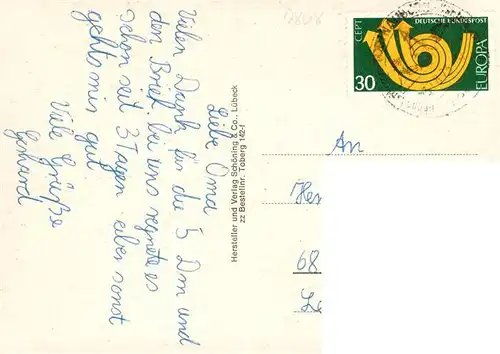 Liebe Oma
Vielen Dank für die 5 Dm und
den Brief. bei uns regnete es
schon seit 3 Tagen aber sonst
geht's mir gut.
Viele Grüße
Gerhard
Hersteller und Verlag Schöning & Co., Lübeck
zz Bestellnr. Toberg 142-f
CEPT
DEUTSCHE BUNDESPOST
30
EUROPA
An
He
68
Le